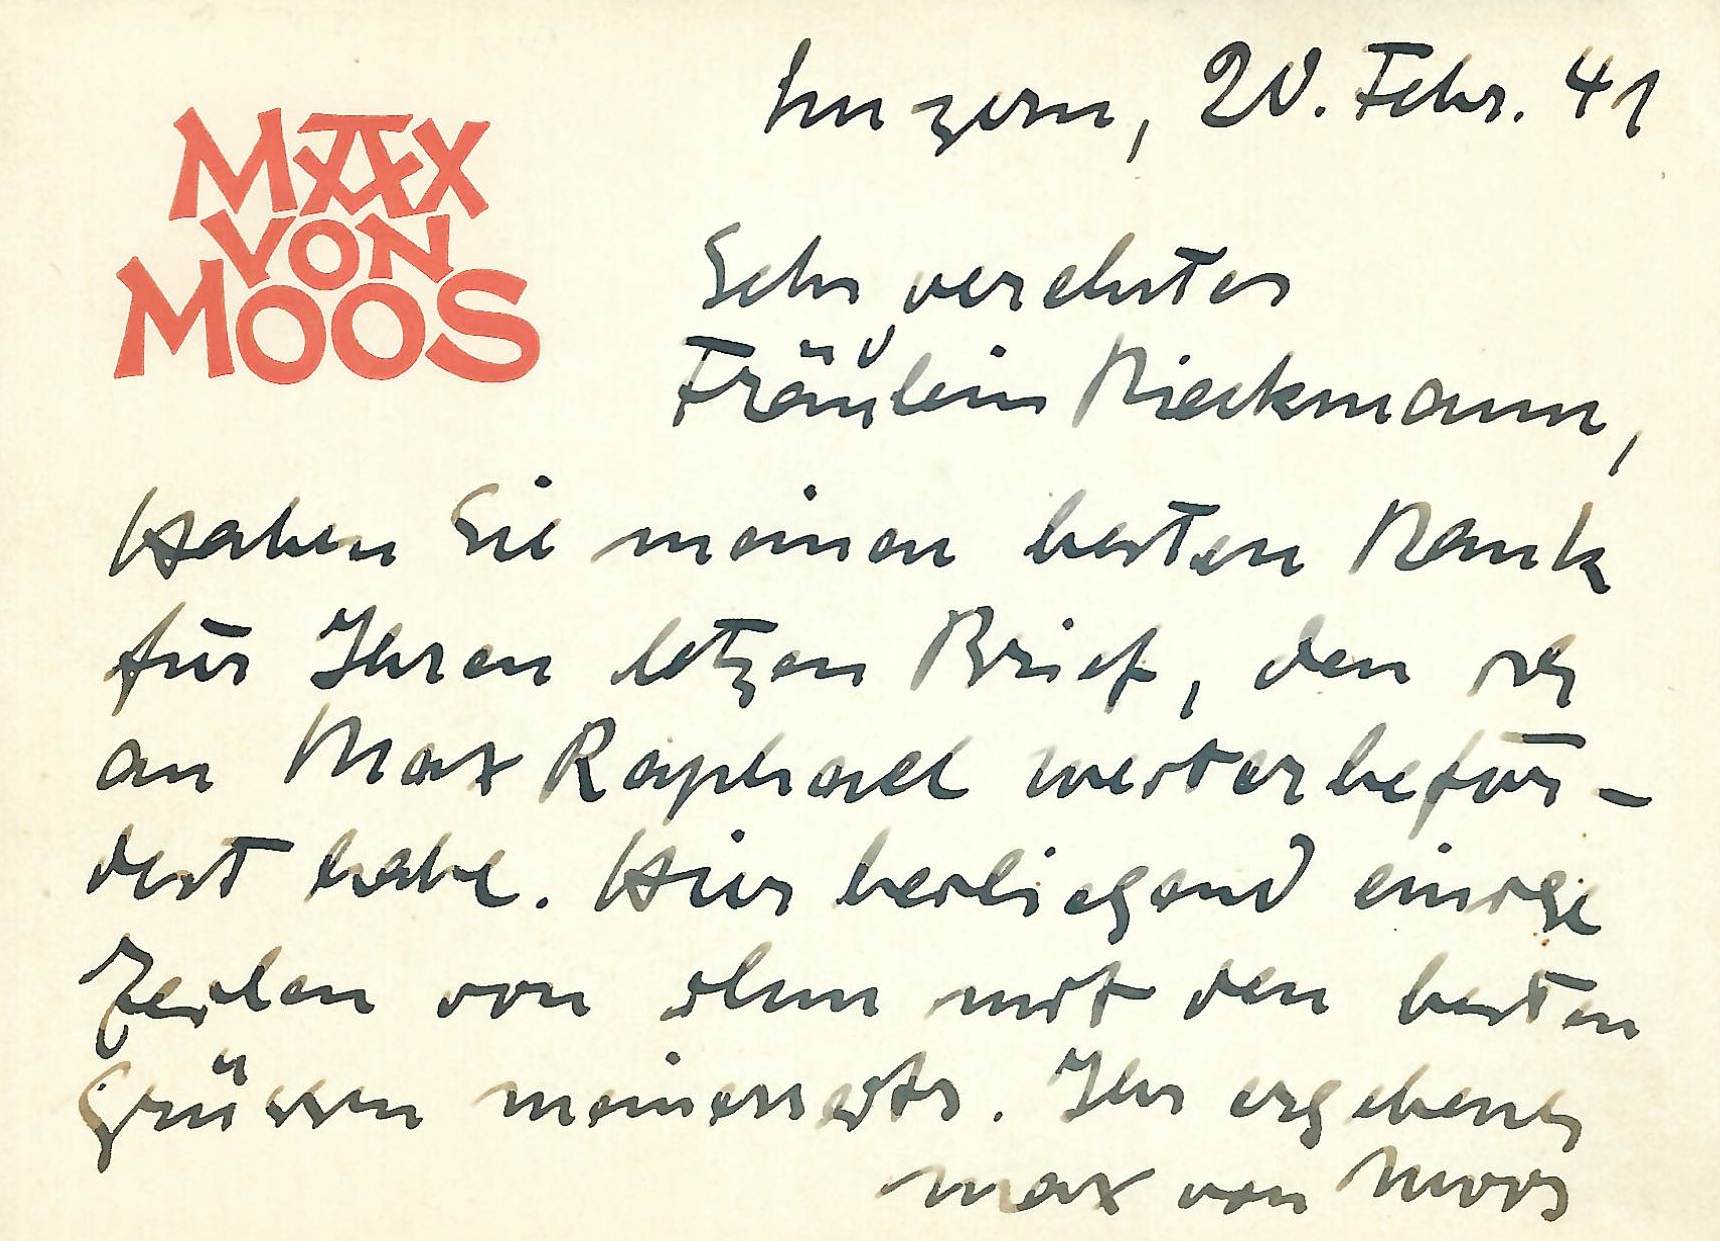 MAX
VON
MOOS
Luzern, 20. Febr. 41
Sehr verehrtes
Fräulein Rieckmann,
Haben Sie meinen besten Dank
für Ihren letzen Brief, den ich
an Max Raphael weiterbeför-
dert habe. Hier beiliegend einige
Zeilen von ihm mit den besten
Grüssen meinerseits. Ihr ergebener
Max von Moos